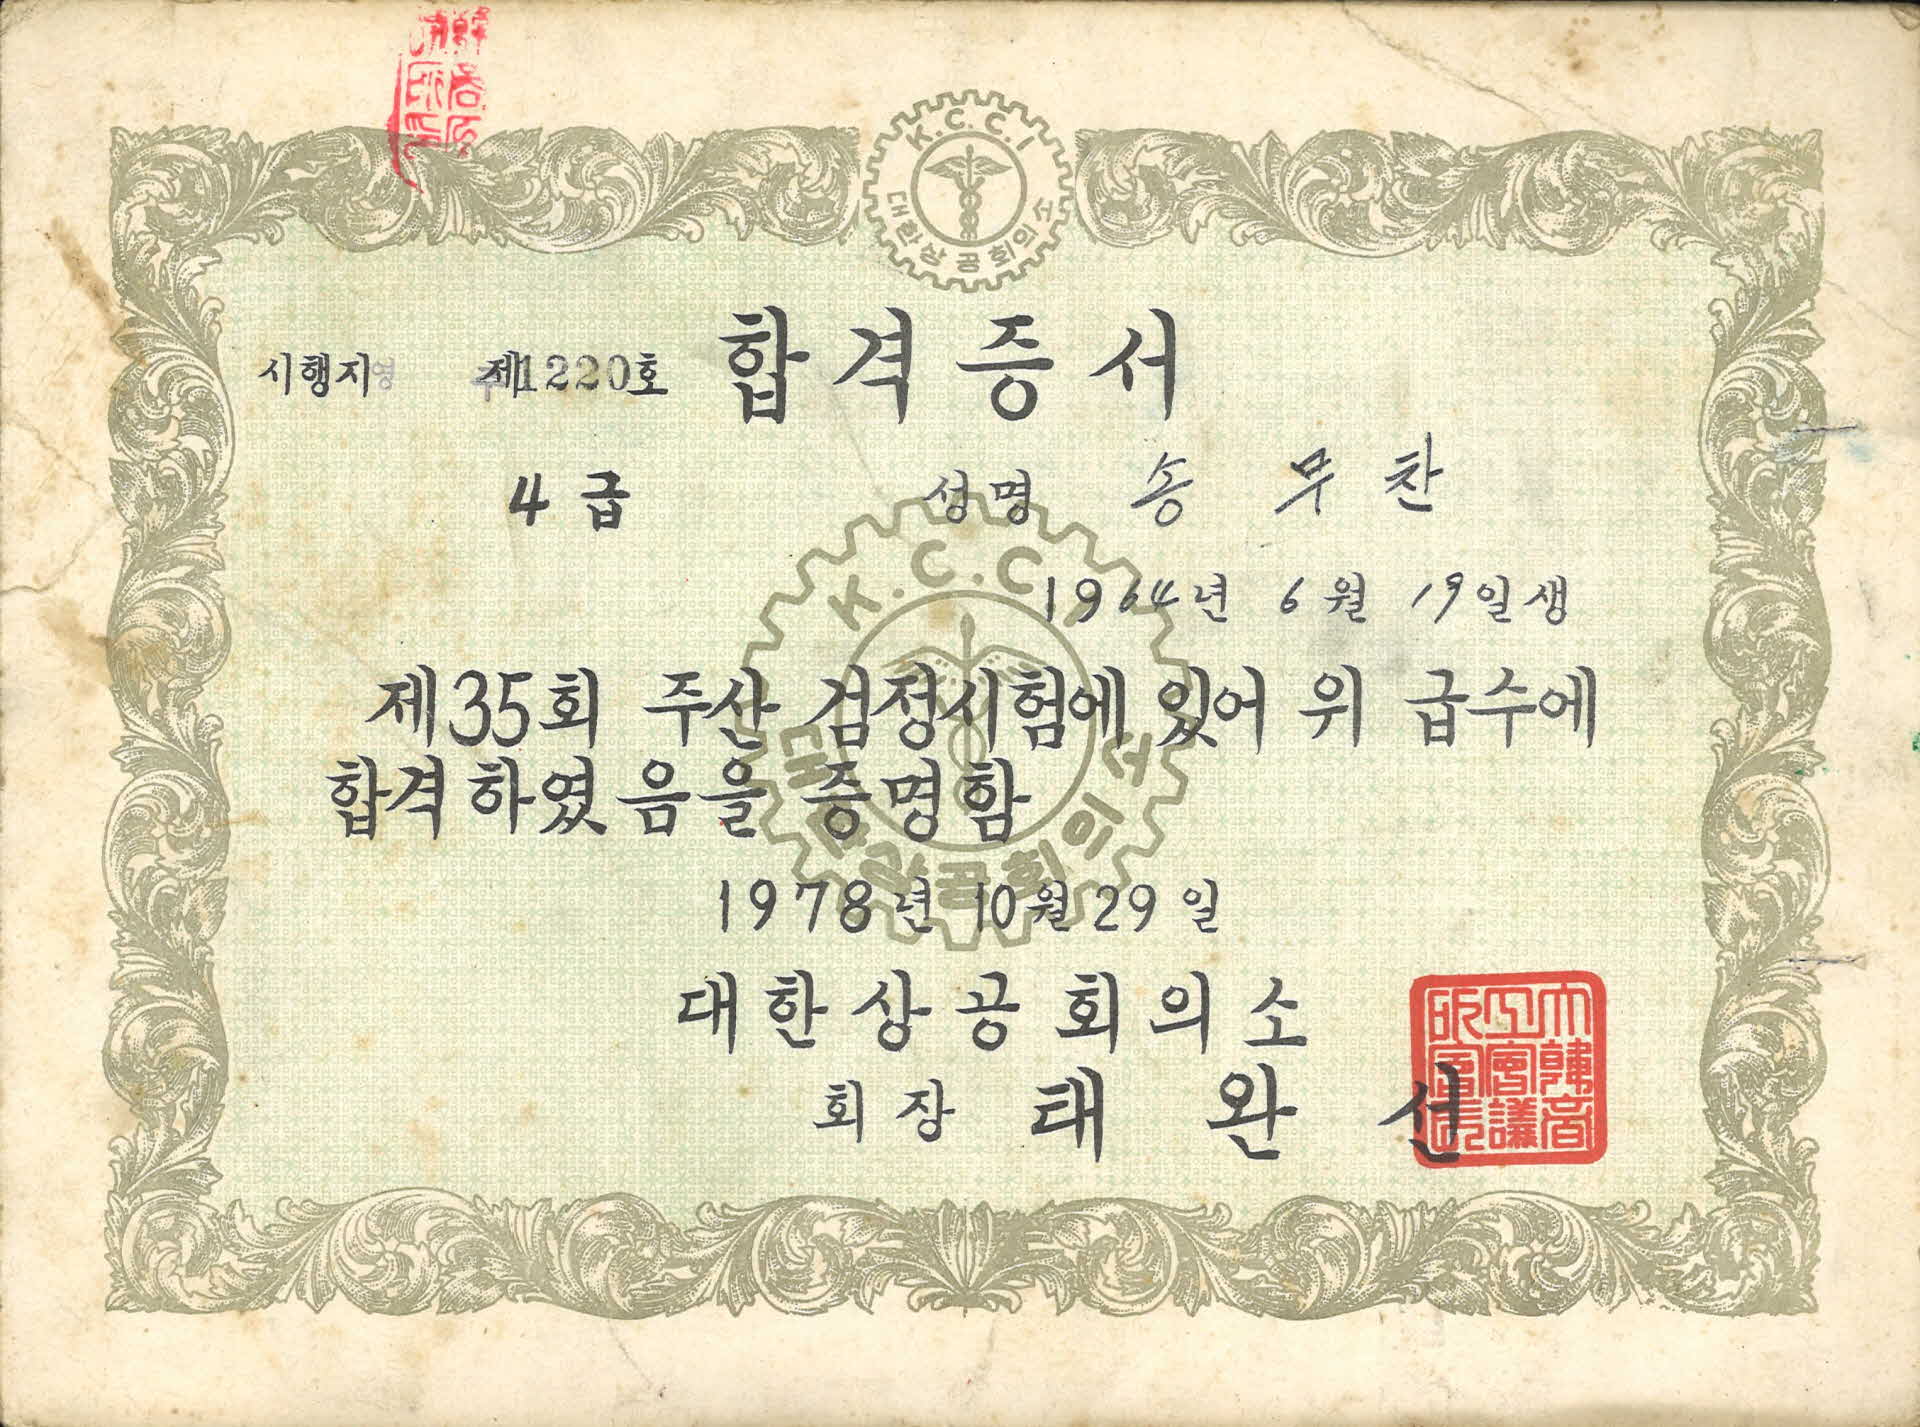 K.C.C.I
대한상공회의소
합격증서
시행지영 제1220호
4급 성명 송무찬
1964년 6월 19일생
제35회 주산 검정시험에 있어 위 급수에
합격하였음을 증명함
1978년 10월 29일
대한상공회의소
회장 태완선
大韓商工會議所會長印
K.C.C.I
대한상공회의소